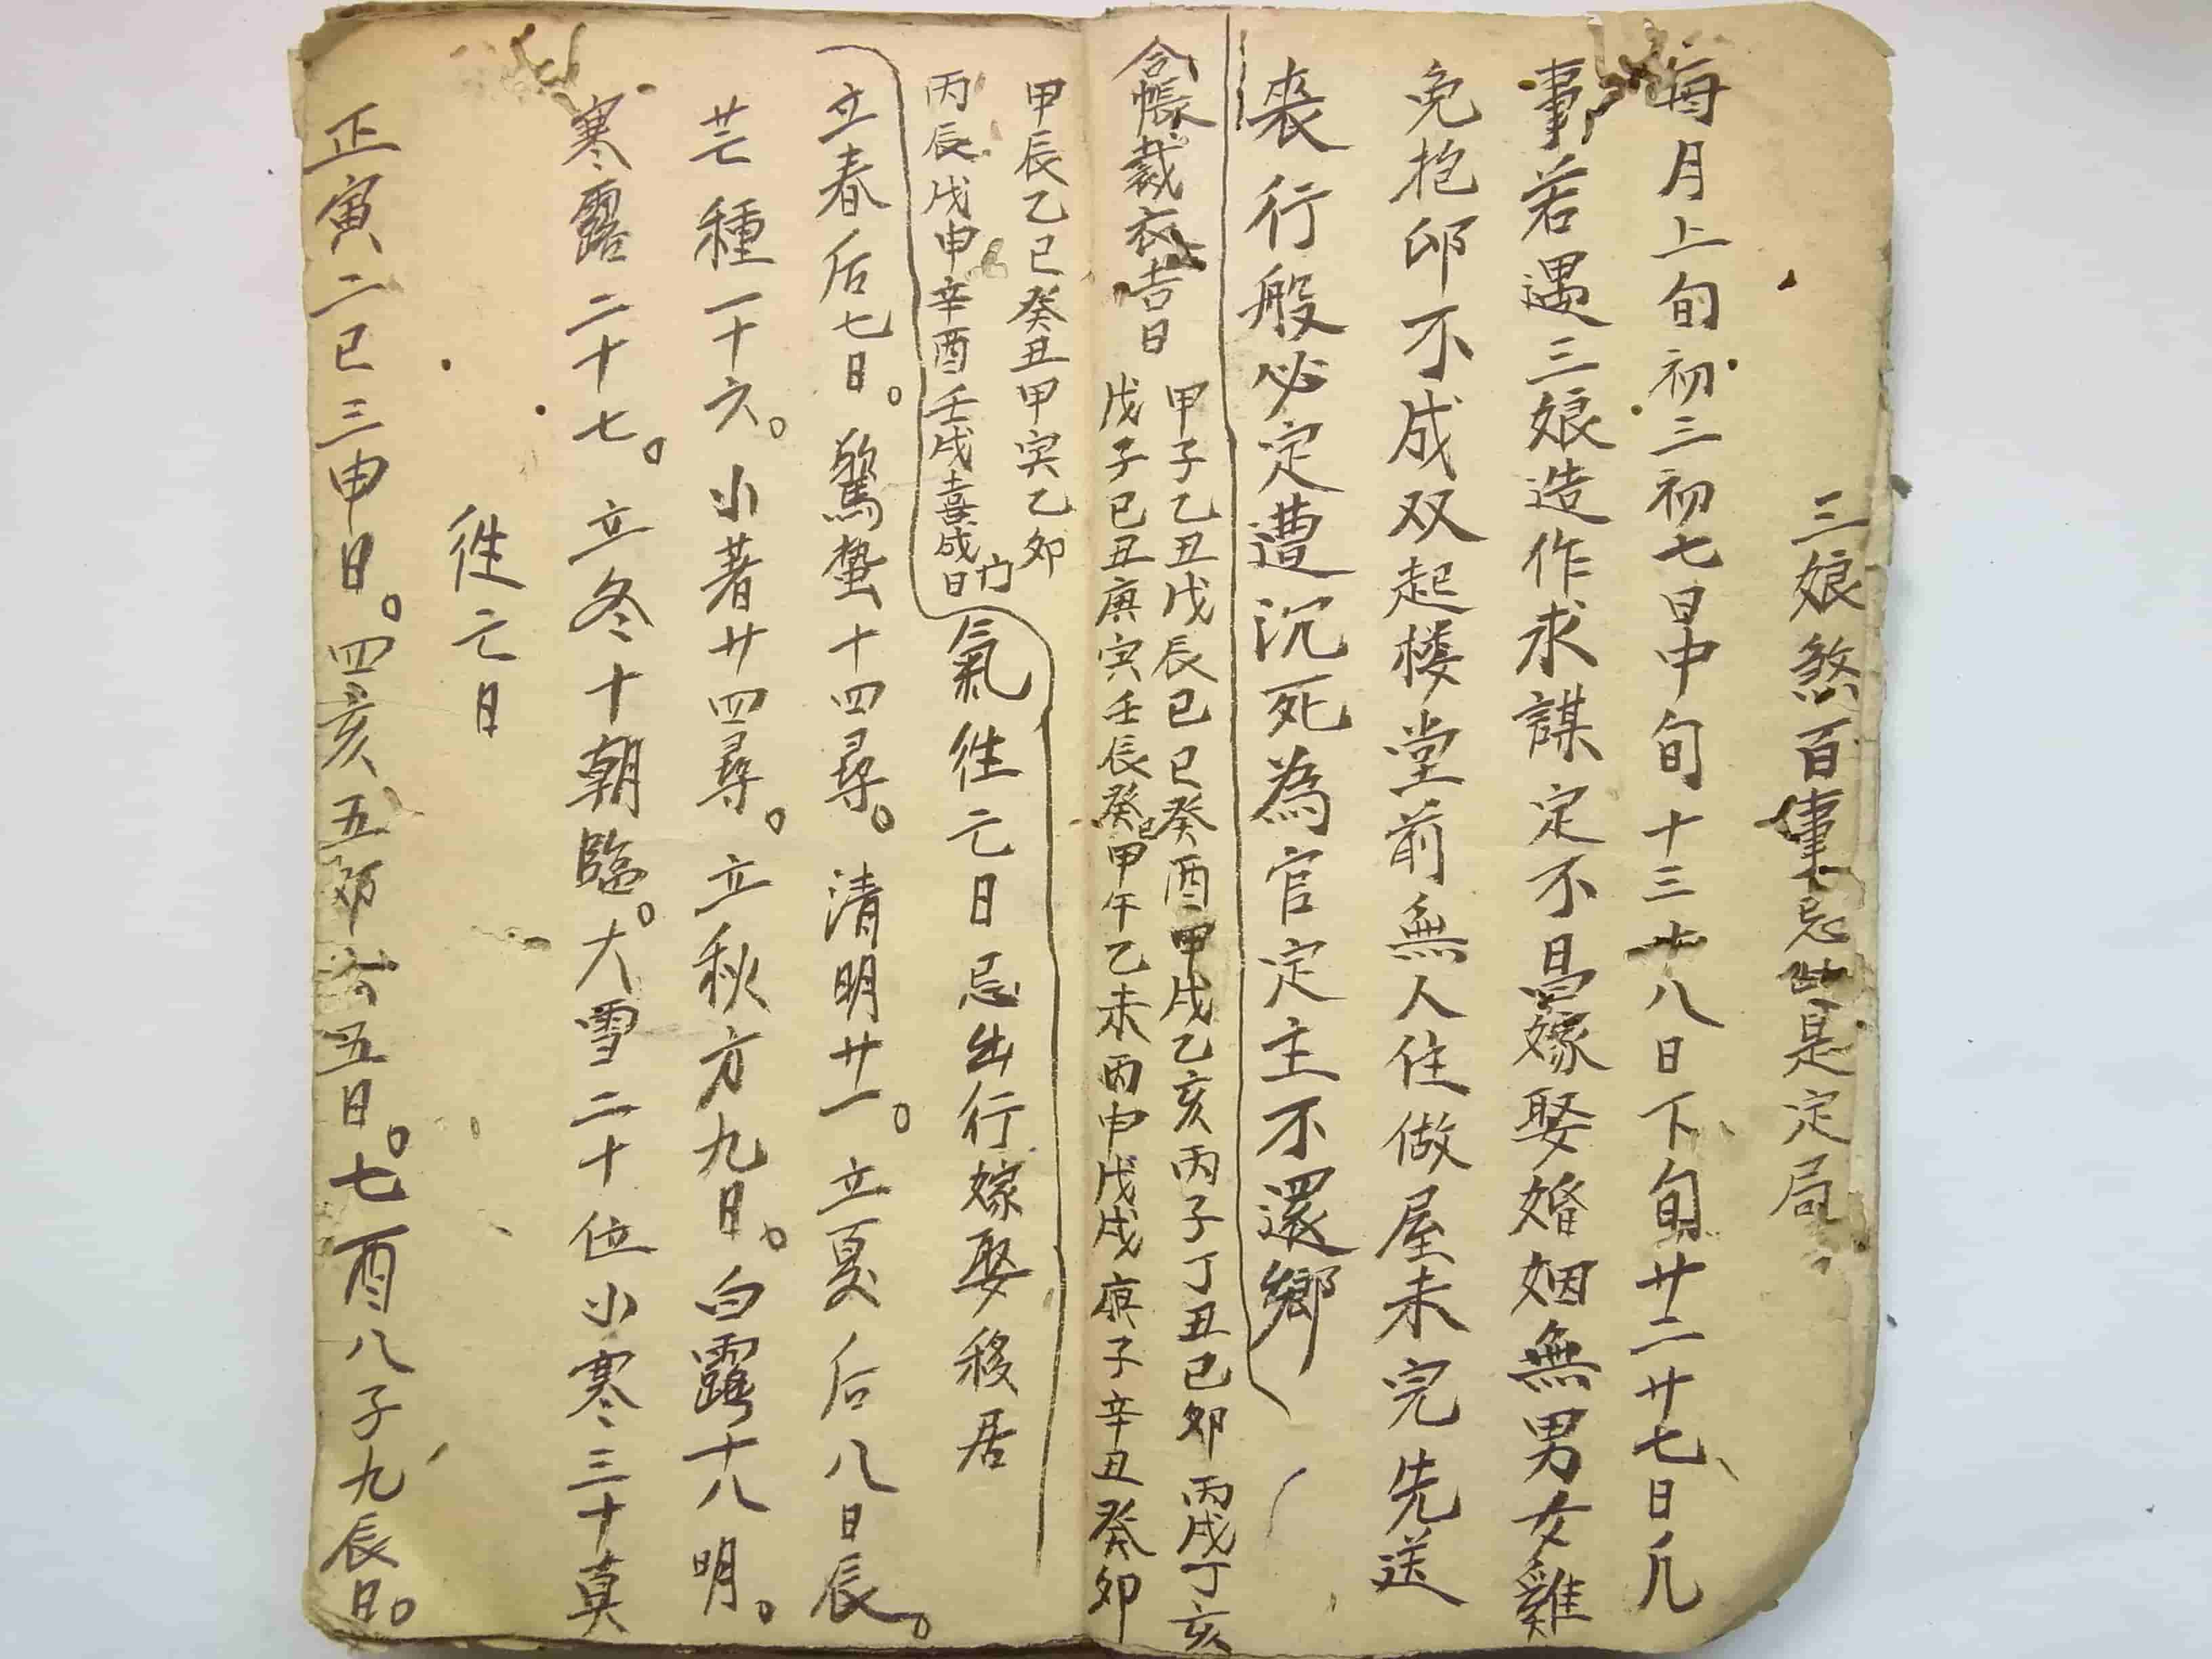 三娘煞百事忌此是定局
每月上旬初三初七日中旬十三十八日下旬廿二廿七日凢
事若遇三娘造作求謀定不昌嫁娶婚姻無男女雞
免抱卵不成双起楼堂前無人住做屋未完先送
丧行般必定遭沉死為官定主不還鄉
合帳裁衣吉日
甲子乙丑戊辰己巳癸酉甲戌乙亥丙子丁丑己卯丙戌丁亥
戊子己丑庚寅壬辰癸巳甲午乙未丙申戊戌庚子辛丑癸卯
甲辰乙巳癸丑甲寅乙卯
丙辰戊申辛酉壬戌喜成日
氣往亡日忌出行嫁娶移居
立春后七日。驚蟄十四尋。清明廿一。立夏后八日辰。
芒種一十六。小暑廿四尋。立秋方九日。白露十八明。
寒露二十七。立冬十朝臨。大雪二十位小寒三十莫
往亡日
正寅二巳三申日。四亥五卯六五日。七酉八子九辰日。